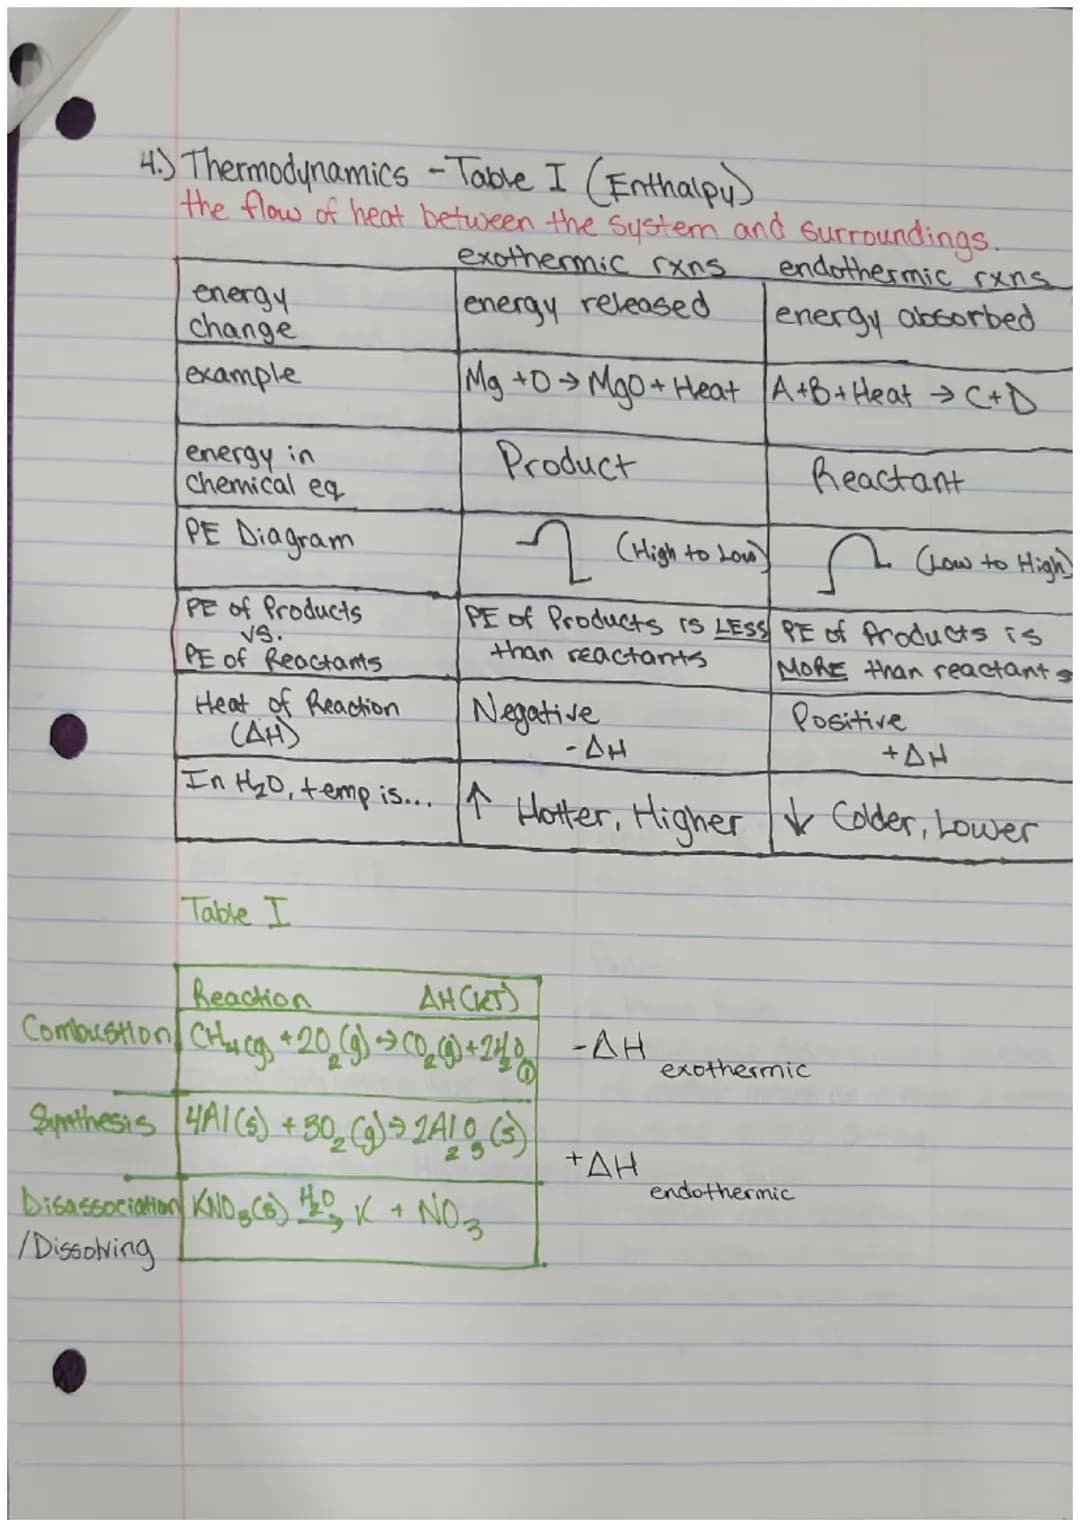 4.) Thermodynamics - Table I (Enthalpy)
the flow of heat between the system and surroundings.
exothermic rxns endothermic rxns
energy change energy released energy absorbed
example Mg + O → MgO + Heat A+B+Heat → C+D
energy in chemical eq Product Reactant
PE Diagram (High to Low) (Low to High)
PE of Products vs. PE of Reactants
PE of Products is LESS than reactants
PE of Products is MORE than reactants
Heat of Reaction (ΔH) Negative -ΔH Positive +ΔH
In H₂O, temp is... ↑ Hotter, Higher ↓ Colder, Lower
Table I
Reaction ΔH (KJ)
Combustion CH₄(g) + 2O₂(g) → CO₂(g) + 2H₂O(l) -ΔH exothermic
Synthesis 4Al(s) + 3O₂(g) → 2Al₂O₃(s)
+ΔH endothermic
Disassociation /Dissolving KNO₃(s) H₂O→ K + NO₃